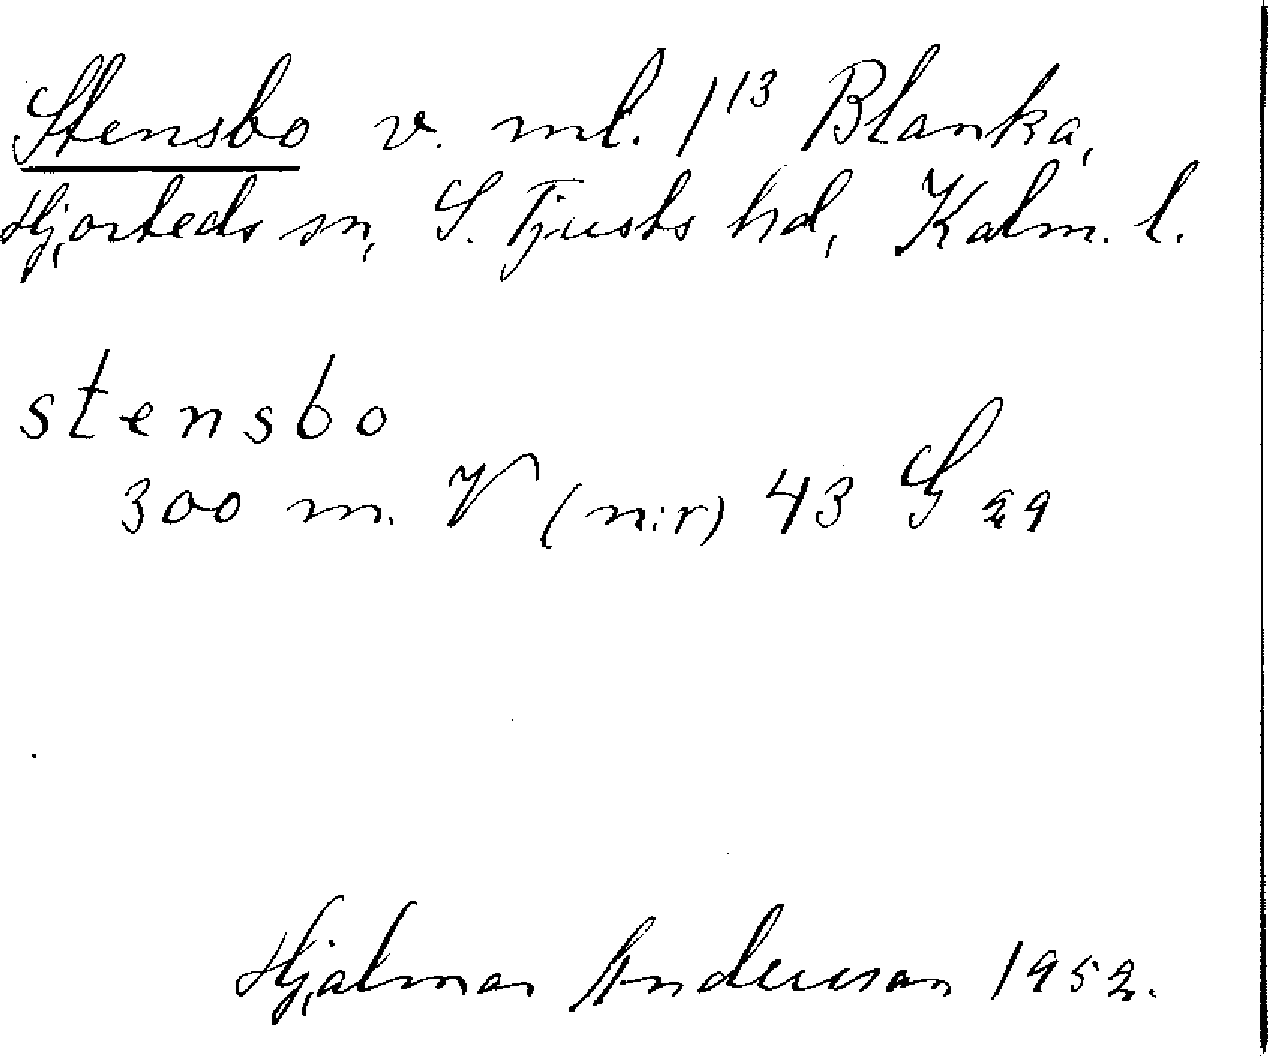 Stensbo v. ml. 1¹³ Blanka,
Hjorteds sn, S. Tjusts hd, Kalm. l.
stensbo
300 m. V (n:r) 43 G 29
Hjalmar Andersson 1952.